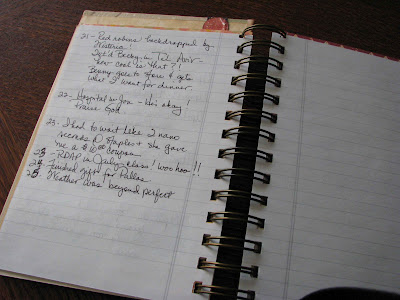 21 - Red robins backdropped by
Wisteria!
IM'd Becky in Tel Aviv -
how cool is that?!
Benny goes to store & gets
what I want for dinner.
22 - Hospital w/ Jon - He's okay!
Praise God
23 - I had to wait like 2 nano
seconds @ Staples & she gave
me a $10.00 coupon
RDAP in Qaley class! woo hoo!!
Finished gift for Dallas
25. Weather was beyond perfect